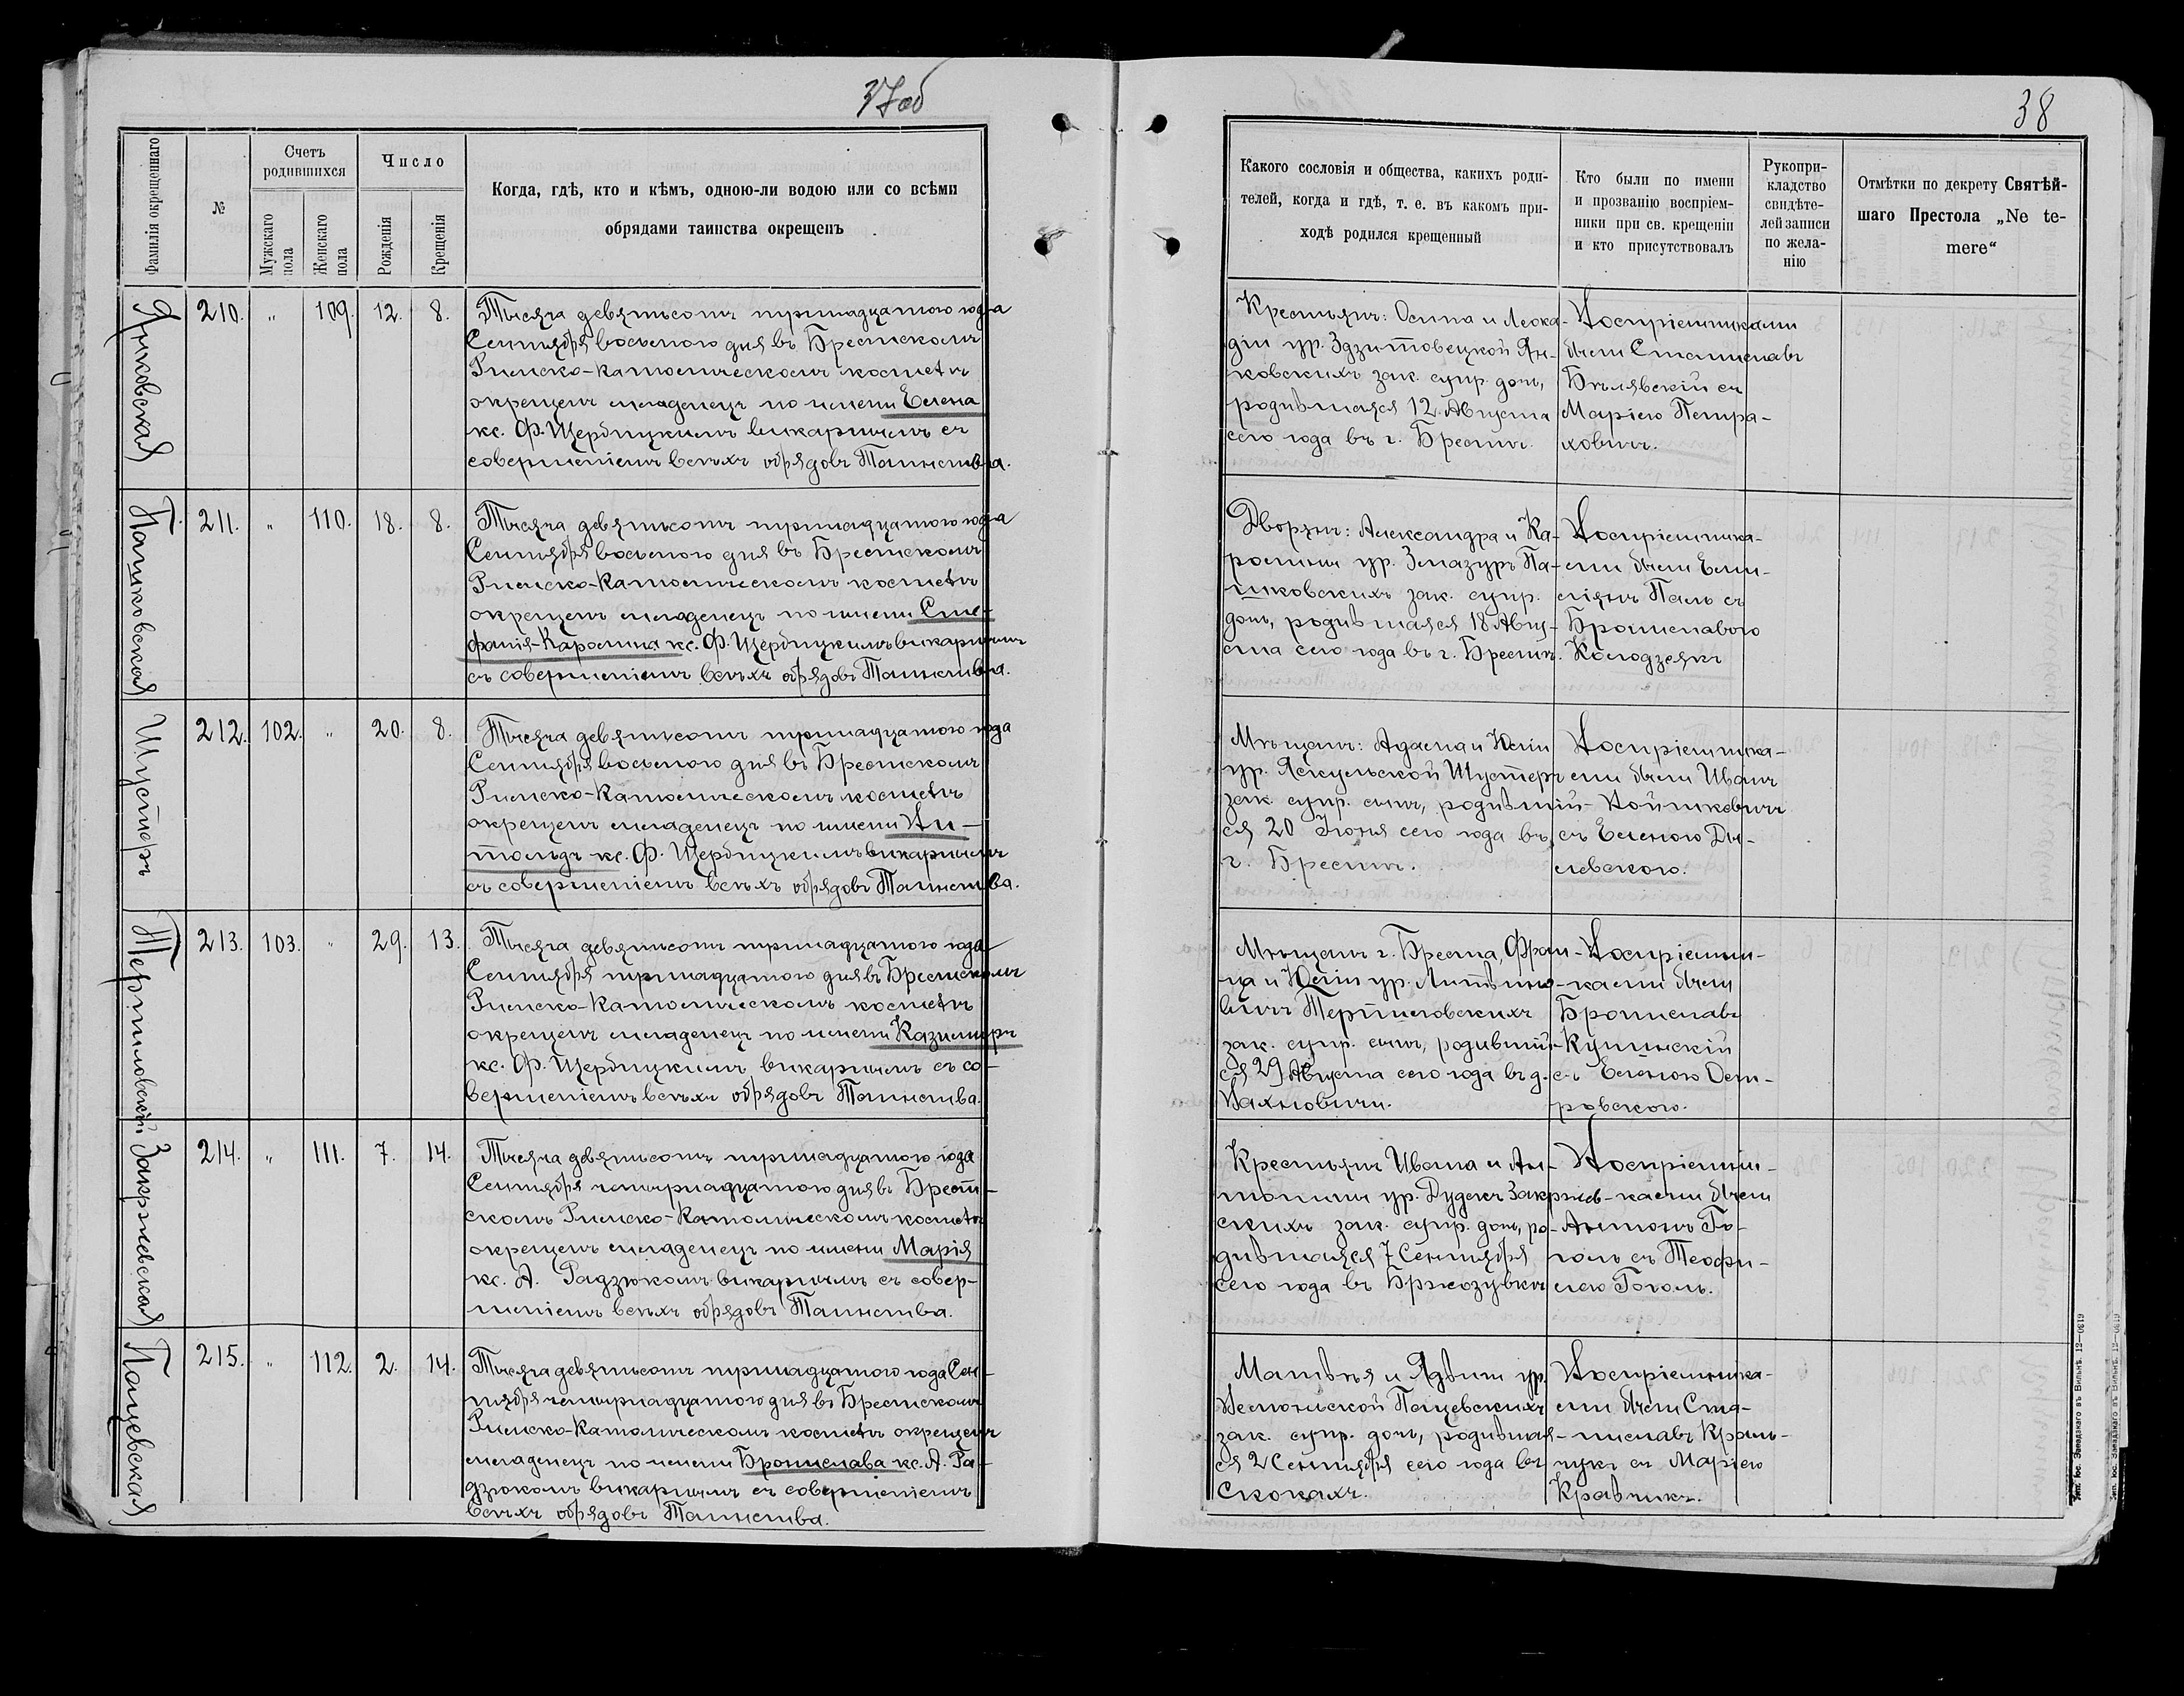 37об
Фамилія окрещеннаго
№
Счетъ родившихся
Мужскаго пола
Женскаго пола
Число
Рожденія
Крещенія
Когда, гдѣ, кто и кѣмъ, одною-ли водою или со всѣми
обрядами таинства окрещенъ
Янковская
210. " 109. 12. 8.
Тысяча девятьсотъ тринадцатого года
Сентября восьмого дня въ Брестскомъ
Римско-Католическомъ костелѣ
окрещенъ младенецъ по имени Елена
кс. Ф. Щербицкимъ викаріимъ съ
совершеніемъ всѣхъ обрядовъ Таинства.
Пашковская
211. " 110. 18. 8.
Тысяча девятьсотъ тринадцатого года
Сентября восьмого дня въ Брестскомъ
Римско-Католическомъ костелѣ
окрещенъ младенецъ по имени Сте-
фанія-Каролина кс. Ф. Щербицкимъ викаріимъ
съ совершеніемъ всѣхъ обрядовъ Таинства.
Шустеръ
212. 102. " 20. 8.
Тысяча девятьсотъ тринадцатого года
Сентября восьмого дня въ Брестскомъ
Римско-Католическомъ костелѣ
окрещенъ младенецъ по имени Ви-
тольдъ кс. Ф. Щербицкимъ викаріимъ
съ совершеніемъ всѣхъ обрядовъ Таинства.
Терпиловскій
213. 103. " 29. 13.
Тысяча девятьсотъ тринадцатого года
Сентября тринадцатого дня въ Брестскомъ
Римско-Католическомъ костелѣ
окрещенъ младенецъ по имени Казимиръ
кс. Ф. Щербицкимъ викаріимъ съ со-
вершеніемъ всѣхъ обрядовъ Таинства.
Закржевская
214. " 111. 7. 14.
Тысяча девятьсотъ тринадцатого года
Сентября четырнадцатого дня въ Брест-
скомъ Римско-Католическомъ костелѣ
окрещенъ младенецъ по имени Марія
кс. А. Радзюкомъ викаріимъ съ совер-
шеніемъ всѣхъ обрядовъ Таинства.
Пацевская
215. " 112. 2. 14.
Тысяча девятьсотъ тринадцатого года Сен-
тября четырнадцатого дня въ Брестскомъ
Римско-Католическомъ костелѣ окрещенъ
младенецъ по имени Бронислава кс. А. Ра-
дзюкомъ викаріимъ съ совершеніемъ
всѣхъ обрядовъ Таинства.
38
Какого сословія и общества, какихъ роди-
телей, когда и гдѣ, т. е. въ какомъ при-
ходѣ родился крещенный
Кто были по имени
и прозванію воспріем-
ники при св. крещеніи
и кто присутствовалъ
Рукопри-
кладство
свидѣте-
лей записи
по жела-
нію
Отмѣтки по декрету Святѣй-
шаго Престола „Ne te-
mere“
Крестьянъ: Осипа и Леока-
діи ур. Здзитовецкой Ян-
ковскихъ зак. супр. дочь,
родившаяся 12. Августа
сего года въ г. Брестѣ.
Воспріемниками
были Станиславъ
Бѣлявскій съ
Маріею Петра-
ховичъ.
Дворянъ: Александра и Ка-
ролины ур. Змазуръ Па-
шковскихъ зак. супр.
дочь, родившаяся 18 Авгу-
ста сего года въ г. Брестѣ.
Воспріемника-
ми были Еми-
ліянъ Паль съ
Брониславою
Колодзеякъ
Мѣщанъ: Адама и Юліи
ур. Яскульской Шустеръ
зак. супр. сынъ, родивший-
ся 20 Іюня сего года въ
г. Брестѣ.
Воспріемника-
ми были Иванъ
Войшковичъ
съ Еленою Ды-
левскою.
Мѣщанъ г. Бреста, Фран-
ца и Юліи ур. Литвино-
вичъ Терпиловскихъ
зак. супр. сынъ, родивший-
ся 29 Августа сего года въ д.
Вахновичи.
Воспріемни-
ками были
Брониславъ
Купинскій
съ Еленою Ост-
ровскою.
Крестьянъ Ивана и Ан-
тонины ур. Дудекъ Закржев-
скихъ зак. супр. дочь, ро-
дившаяся 7 Сентября
сего года въ Бржозувкѣ
Воспріемни-
ками были
Антонъ Го-
голь съ Теофи-
лею Гоголь.
Матвѣя и Ядвиги ур.
Пацевскихъ
зак. супр. дочь, родившая-
ся 2 Сентября сего года въ
Скокахъ.
Воспріемника-
ми были Ста-
ниславъ Краль-
чукъ съ Маріею
Кравчикъ.
Тип. Іос. Завадзкаго въ Вильнѣ. 12—6130
Тип. Іос. Завадзкаго въ Вильнѣ. 12—6130